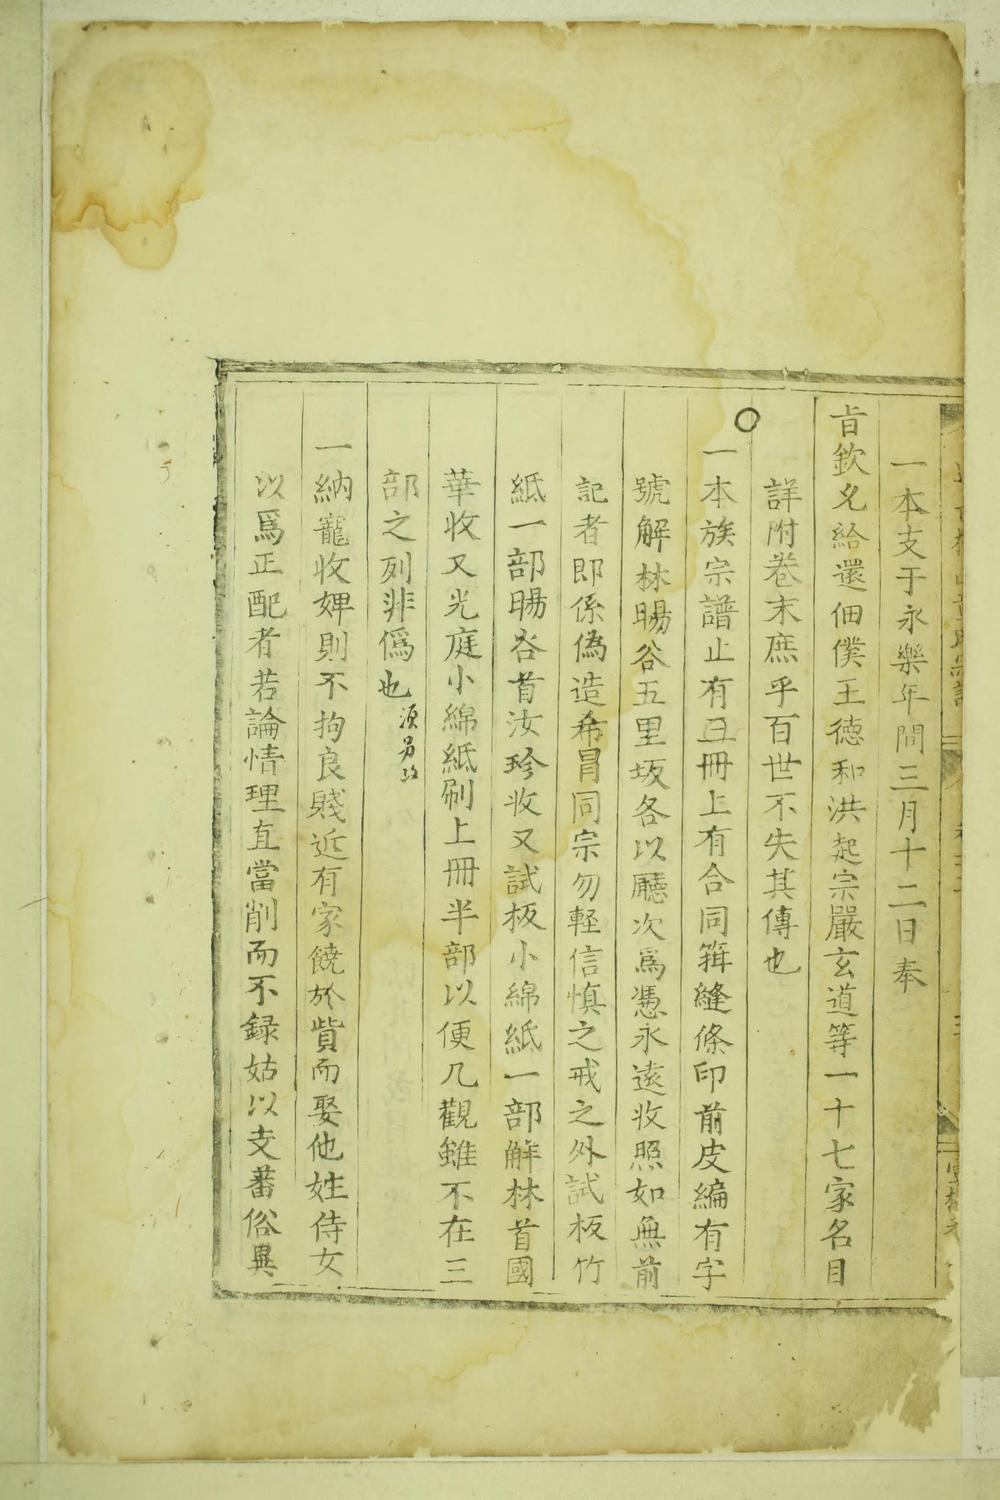 一本支于永樂年間三月十二日奉
旨欽兌給還佃僕王德和洪起宗嚴玄道等一十七家名目
詳附卷末庶乎百世不失其傳也
一本族宗譜止有冊上有合同箱縫條印前皮編有字
號解林暘谷五里坂各以廳次為憑永遠收照如無前
記者即係偽造希冒同宗勿輕信慎之戒之外試板竹
紙一部暘谷首汝珍收又試板小綿紙一部解林首國
華收又光庭小綿紙刷上冊半部以便几觀雖不在三
部之列非偽也
一納寵收婢則不拘良賤近有家饒於貲而娶他姓侍女
以爲正配者若論情理直當削而不録姑以支蕃俗異